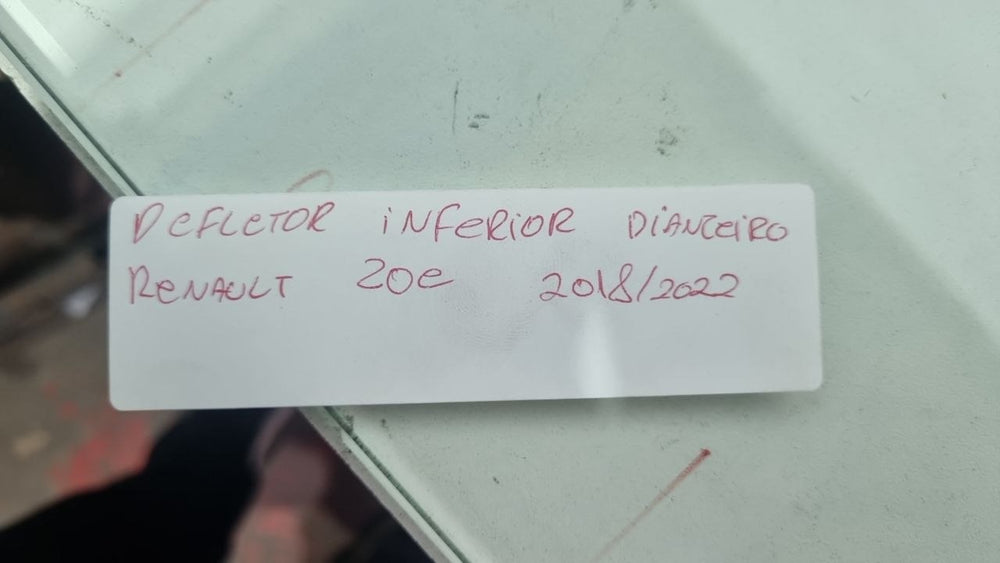 DEFLETOR INFERIOR DIANTEIRO
RENAULT ZOE 2018/2022